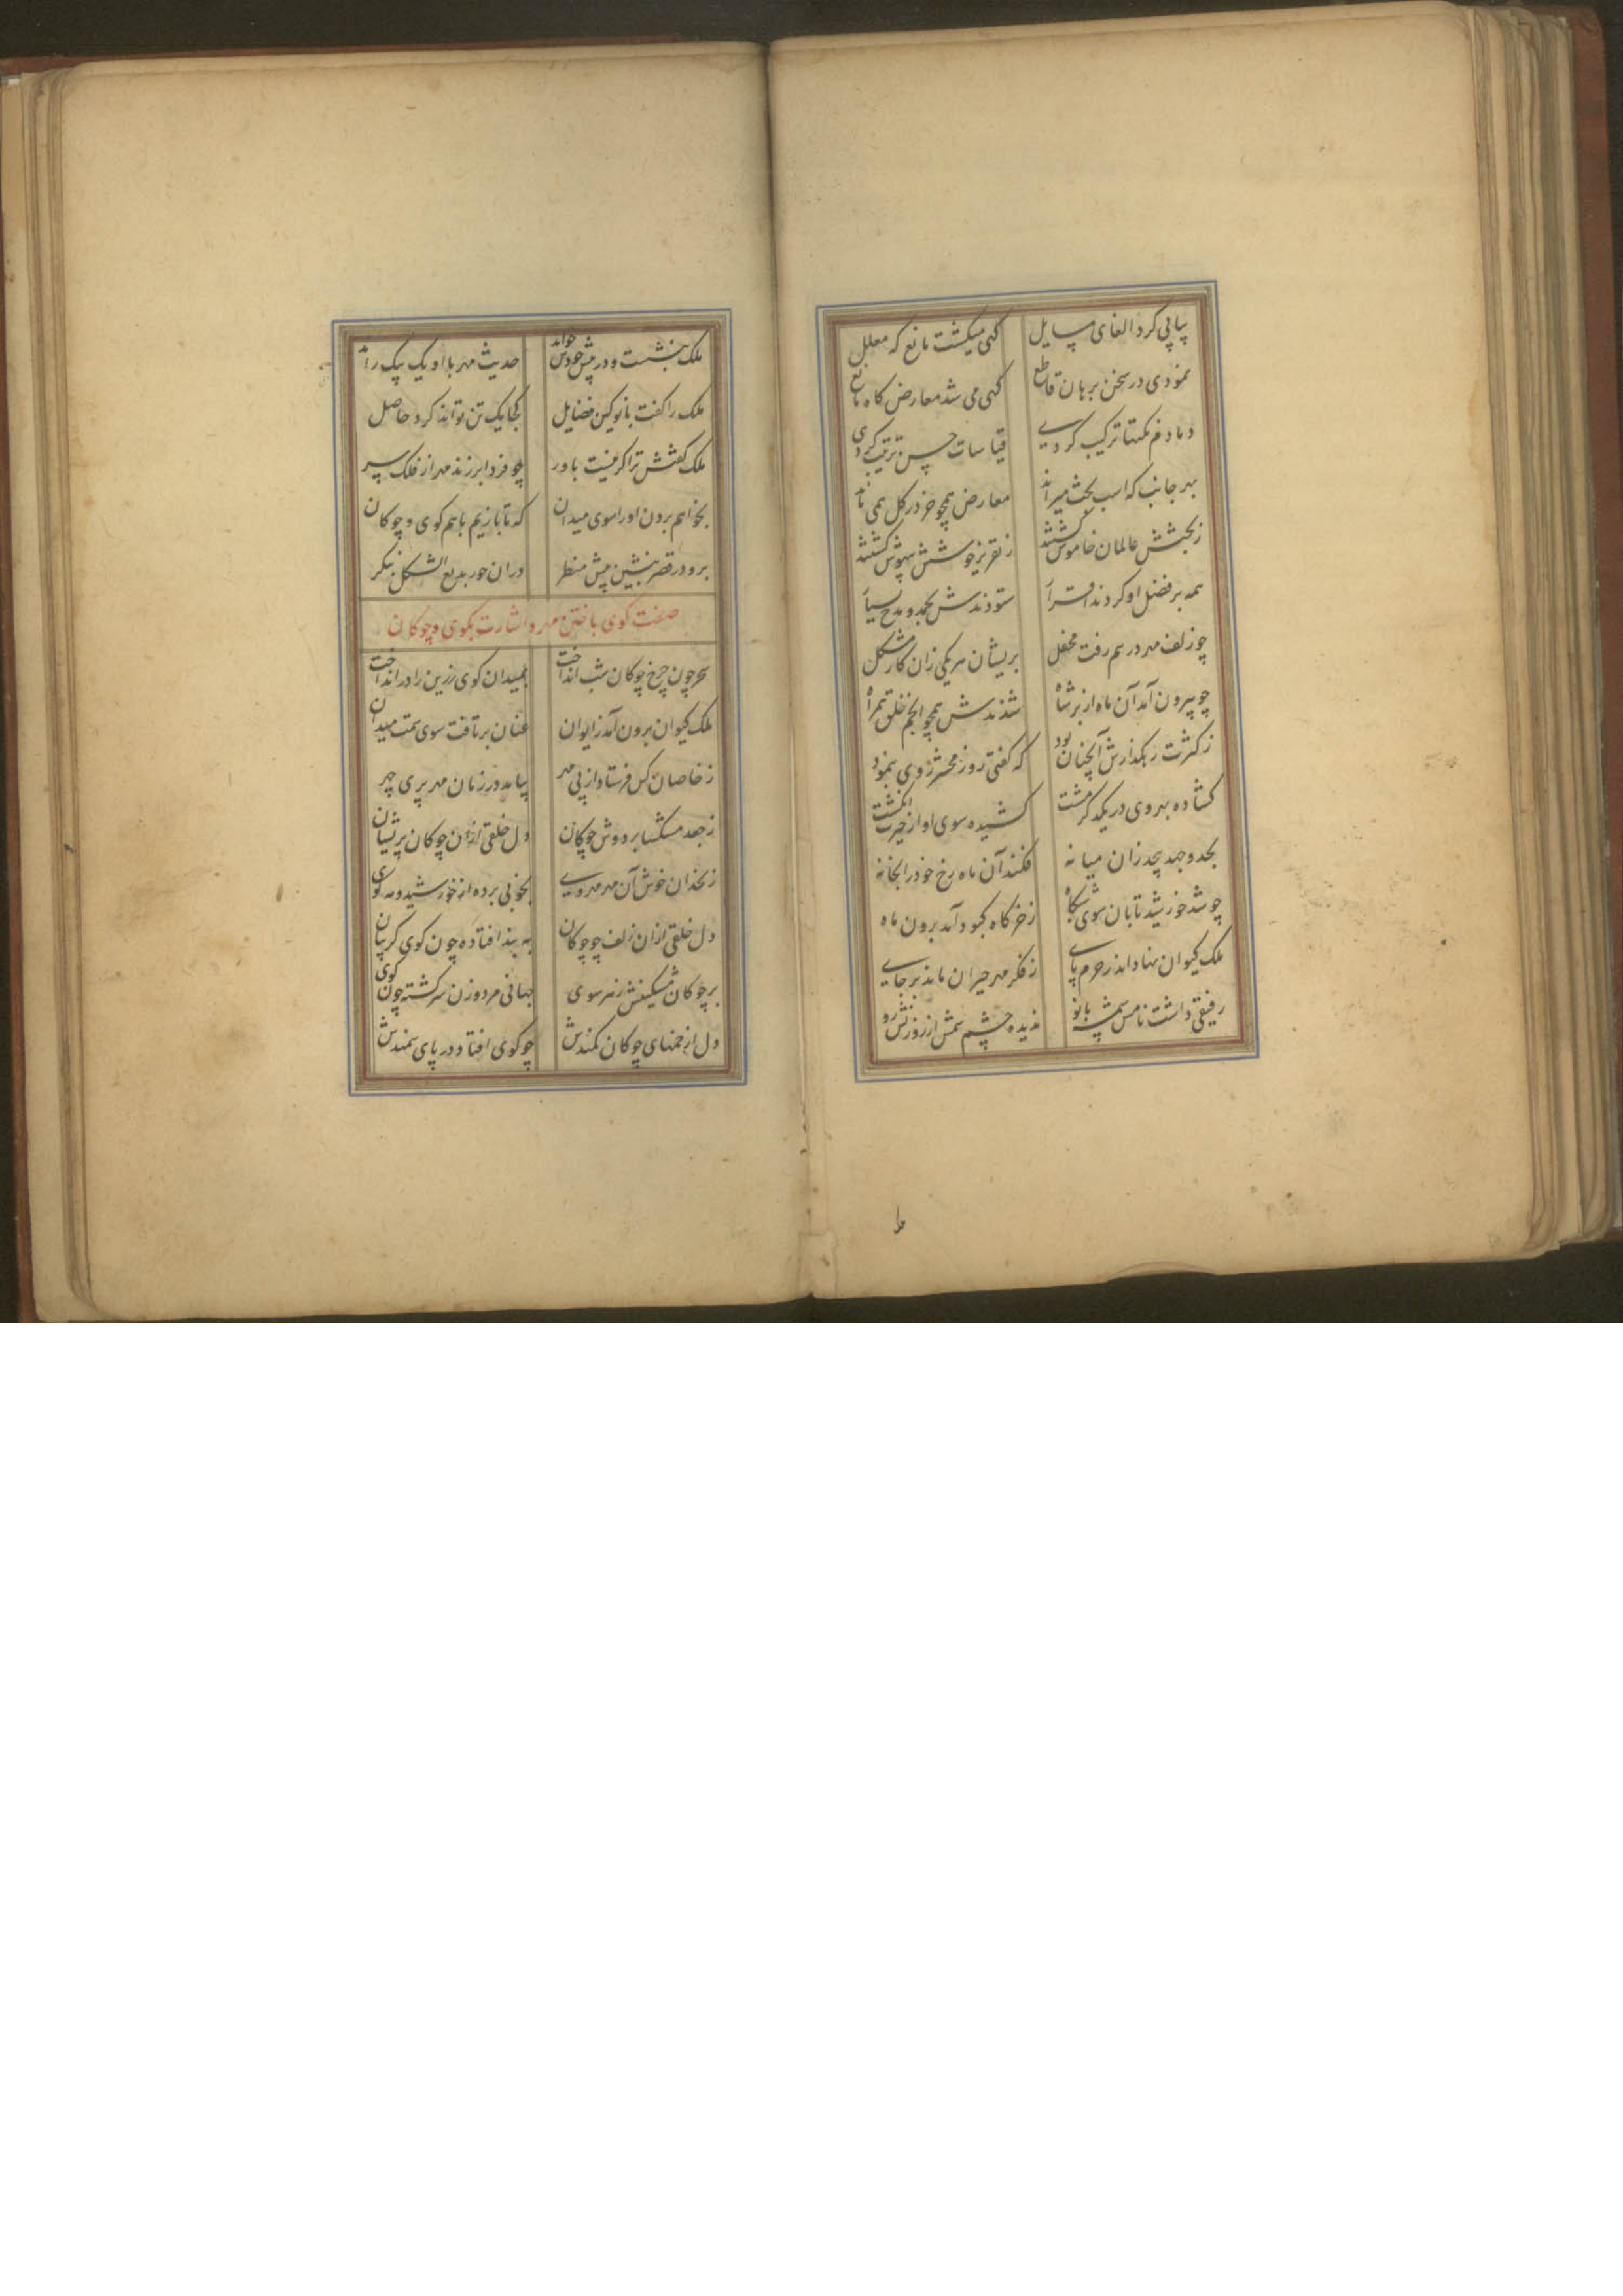 پیاپی کرد القای مسایل گهی میگشت مانع که معلل
نمودی در سخن برهان قاطع گهی می شد معارض کاه مانع
دمادم نکتها ترکیب کردی قیاسات حسن ترتیب کردی
بهر جانب که اسب بحث میراند معارض همچو خر در کل همی ماند
ز بحثش عالمان خاموش گشتند ز تقریر خوشش بیهوش گشتند
همه بر فضل او کردند اقرار ستودندش بحمد و مدح بسیار
چو زلف مهر درهم رفت محفل پریشان هر یکی زان کار مشکل
چو بیرون آمد آن ماه از بر شاه شدندش همچو انجم خلق همراه
ز کثرت رهکذارش آنچنان بود که گفتی روز محشر روی بنمود
گشاده بهر وی در یکدگر مشت کشیده سوی او از حیرت انگشت
بجد و جهد بیحد زان میانه فکند آن ماه رخ خود را بخانه
چو شد خورشید تابان سوی بنگاه ز خرگاه کبود آمد برون ماه
ملک کیوان نهاد اندر حرم پای ز فکر مهر حیران ماند بر جای
رفیقی داشت نامش سمسه بانو ندیده چشم شمس از روزنش رو
ملک بنشست و در پیش خودش خواند حدیث مهر با او یک بیک راند
ملک را گفت بانو کین فضایل کجا یک تن تواند کرد حاصل
ملک گفتش ترا گر نیست باور چو فردا بر زند مهر از فلک سر
بخواهم بردن او را سوی میدان که تا بازیم باهم کوی و چوکان
برو در قصر بنشین پیش منظر در ان حور بدیع الشکل بنگر
صفت کوی باختن مهر و اشارت بکوی و چوکان
سحر چون چرخ چوکان شب انداخت بمیدان کوی زرین را در انداخت
ملک کیوان برون آمد ز ایوان عنان برتافت سوی سمت میدان
ز خاصان کس فرستاد از پی مهر بیامد در زمان مهر پری چهر
ز جعد مشکسا بر دوش چوکان دل خلقی از ان چوکان پریشان
زنخدان خوش آن مهر مهروی بخوبی برده از خورشید و مه کوی
دل خلقی از ان زلف چو چوکان به بند افتاده چون کوی کریبان
بر چوکان مشکینش ز هر سوی جهانی مرد و زن سرکشته چون کوی
دل از خمهای چوکان کمندش چو کوی افتاد در پای سمندش